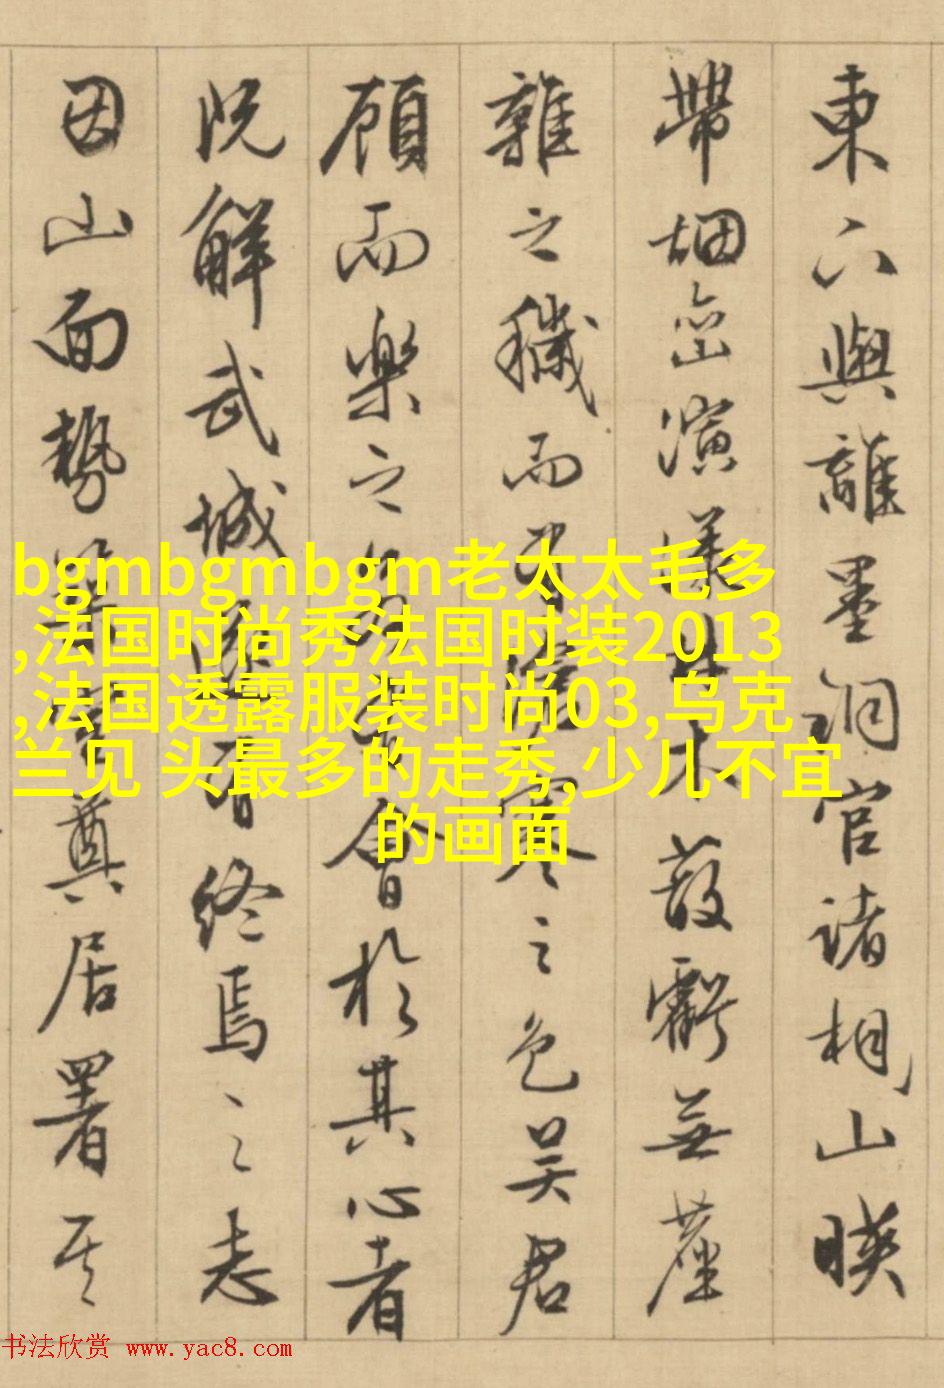 東與離墨銅官諸相山暎
帶烟巒演漾林木蔽虧無塵
雜之穢而有寒之色吳君
顧而樂之會於其心者
既解武城遂有終焉之志
因山面勢奠居署其
bgmbgmbgm老太太毛多
,法国时尚秀法国时装2013
,法国透露服装时尚03,乌克
兰见 头最多的走秀,少儿不宜
的画面
书法欣赏 www.yac8.com